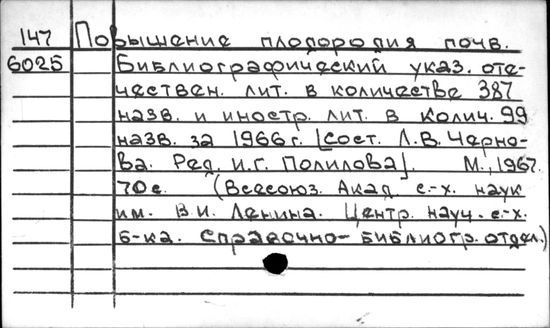 147 Повышение плодородия почв.
6025 Библиографический указ. оте-
чествен. лит. в количестве 387
назв. и иностр. лит. в колич. 99
назв. за 1966 г. [Сост. Л.В. Черно-
ва. Ред. И.Г. Полилова]. М., 1967.
70 с. (Всесоюз. Акад. с.-х. наук
им. В.И. Ленина. Центр. науч. с.-х.
б-ка. Справочно-библиогр. отдел.)